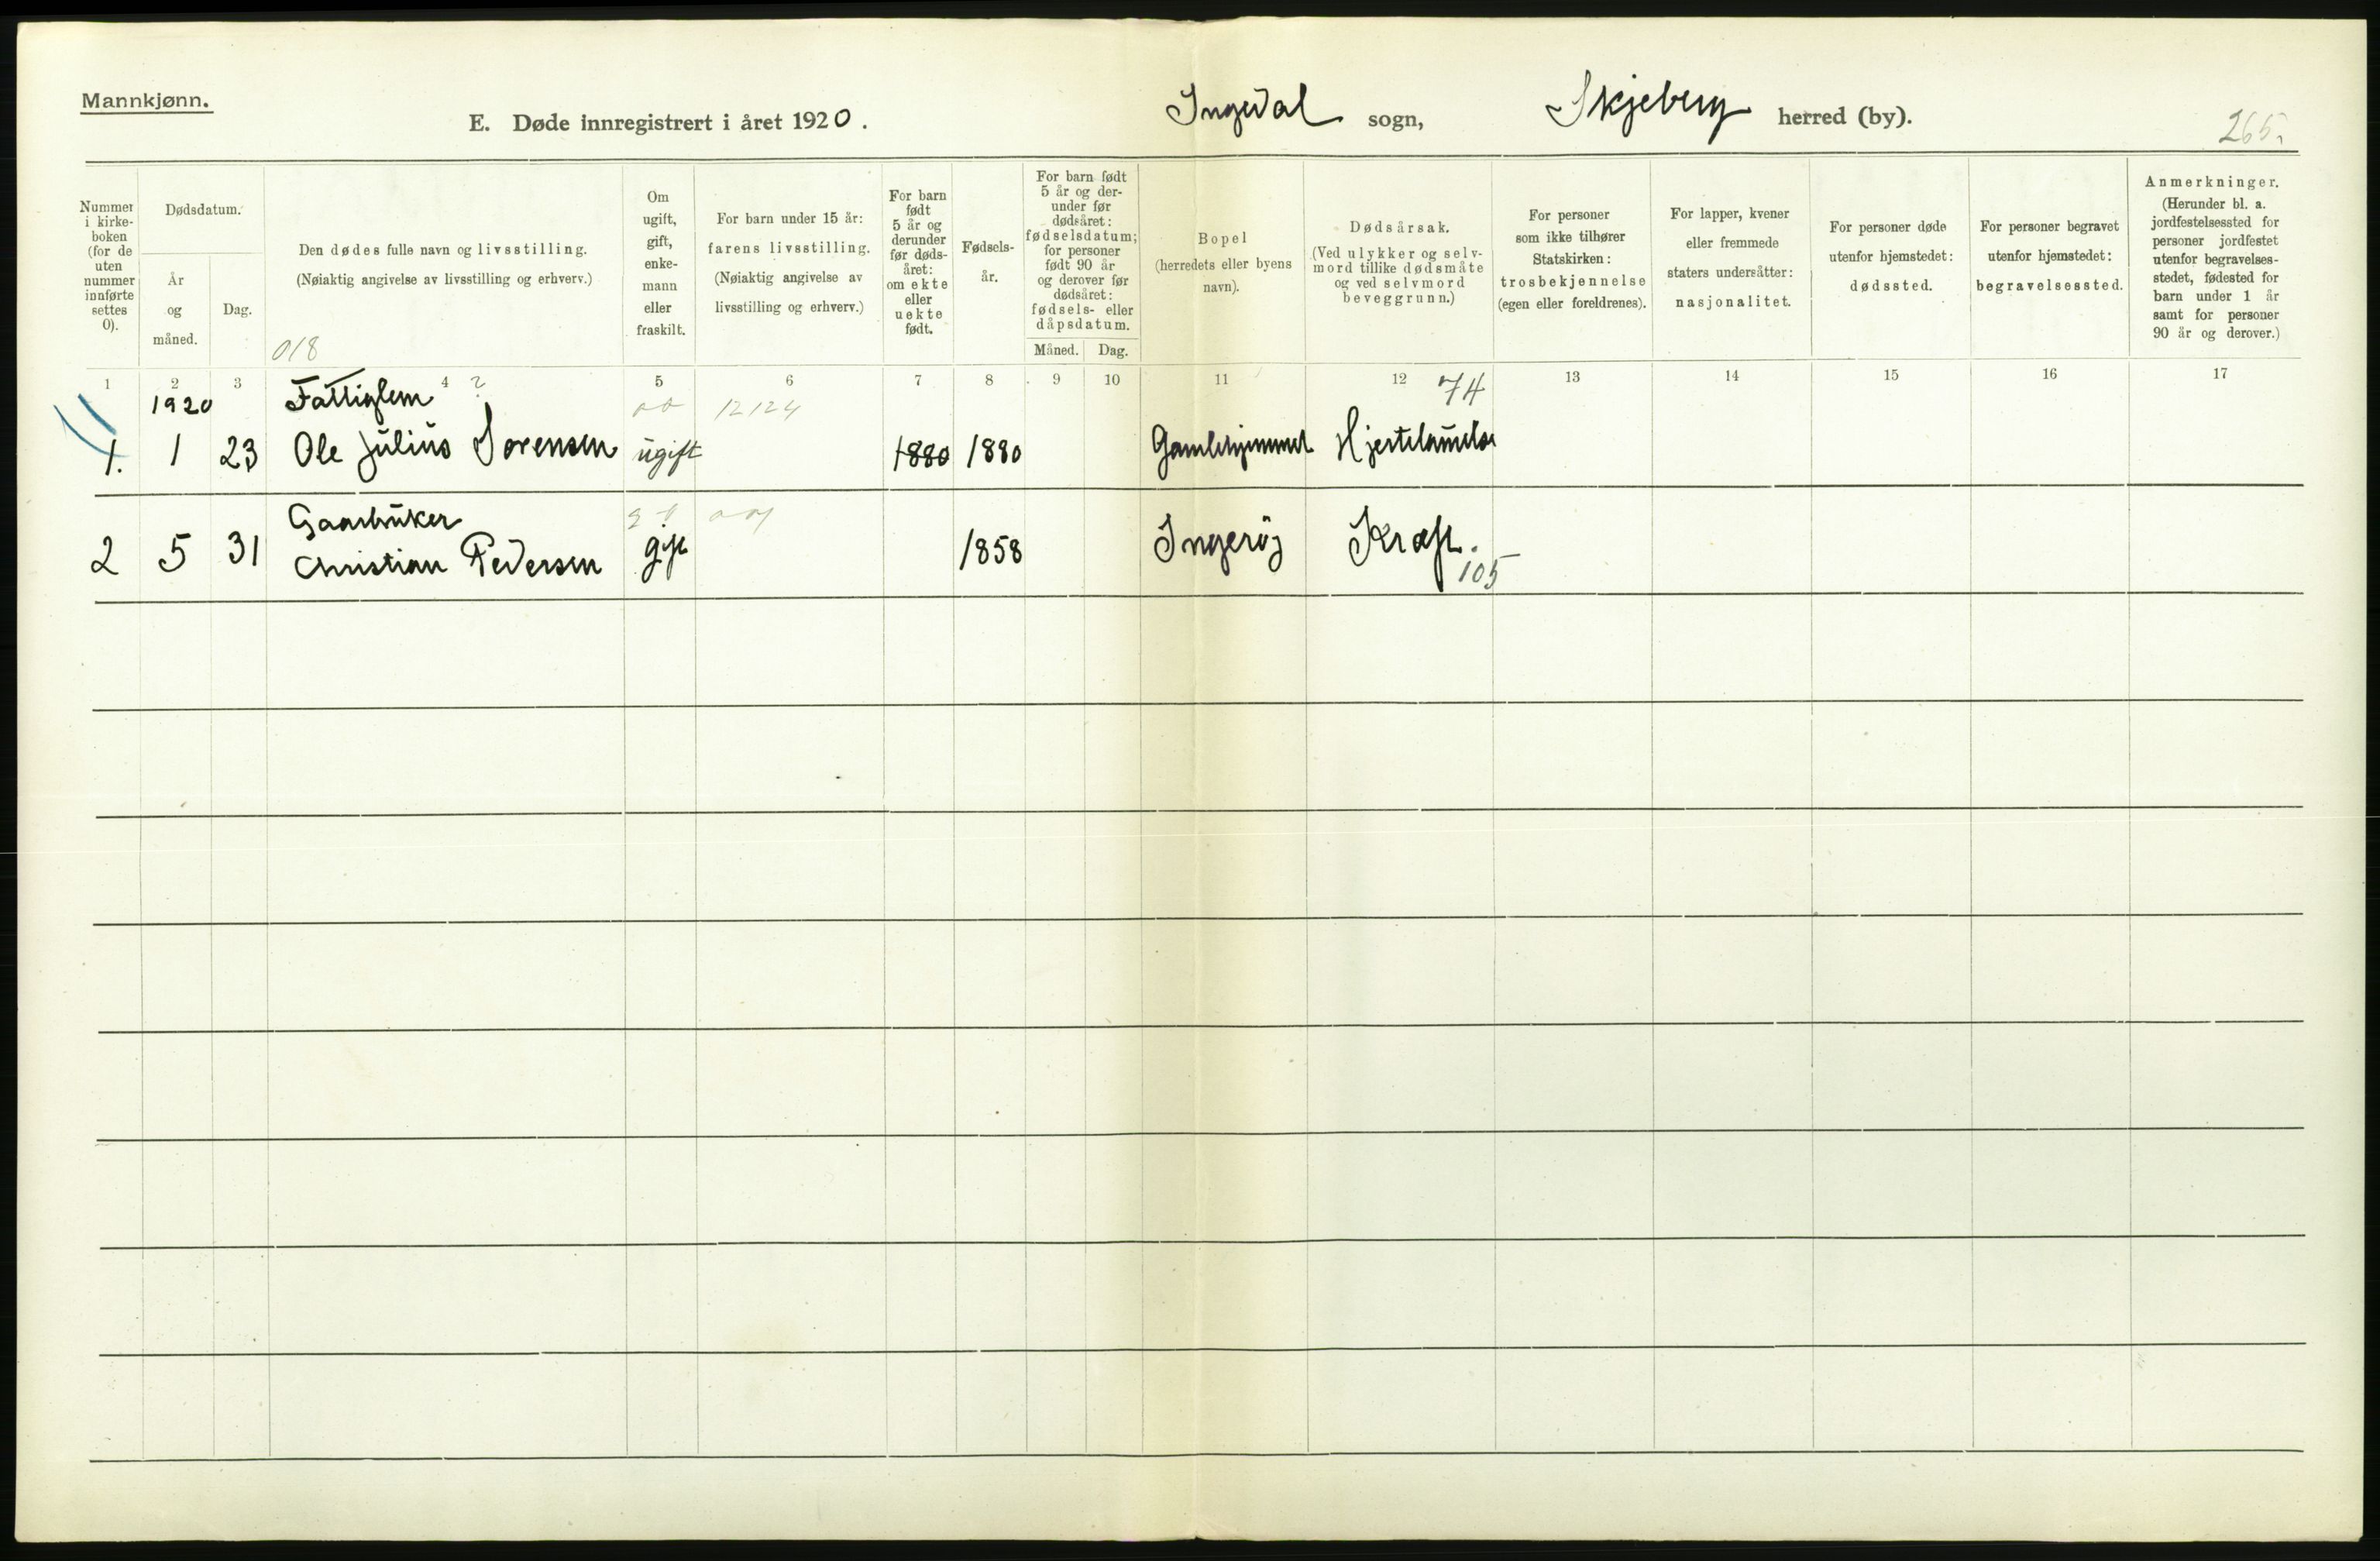 Mannkjønn.
E. Døde innregistrert i året 1920.
Ingedal sogn, Skjeberg herred (by).
265.
Nummer
i kirke-
boken
(for de
uten
nummer
innførte
settes
0).
Dødsdatum.
År
og
måned.
Dag.
Den dødes fulle navn og livsstilling.
(Nøiaktig angivelse av livsstilling og erhverv.)
018
Om
ugift,
gift,
enke-
mann
eller
fraskilt.
For barn under 15 år:
farens livsstilling.
(Nøiaktig angivelse av
livsstilling og erhverv.)
For barn
født
5 år og
derunder
før døds-
året:
om ekte
eller
uekte
født.
Fødsels-
år.
For barn født
5 år og der-
under før
dødsåret:
fødselsdatum;
for personer
født 90 år
og derover før
dødsåret:
fødsels- eller
dåpsdatum.
Måned. Dag.
Bopel
(herredets eller byens
navn).
Dødsårsak.
(Ved ulykker og selv-
mord tillike dødsmåte
og ved selvmord
beveggrunn.)
For personer
som ikke tilhører
Statskirken:
trosbekjennelse
(egen eller foreldrenes).
For lapper, kvener
eller fremmede
staters undersåtter:
nasjonalitet.
For personer døde
utenfor hjemstedet:
dødssted.
For personer begravet
utenfor hjemstedet:
begravelsessted.
Anmerkninger.
(Herunder bl. a.
jordfestelsessted for
personer jordfestet
utenfor begravelses-
stedet, fødested for
barn under 1 år
samt for personer
90 år og derover.)
1 2 3 4 5 6 7 8 9 10 11 12 13 14 15 16 17
1920 Fattiglem ? 12124 74
1. 1 23 Ole Julius Sorensen ugift 1880 1880 Gamlehjemmet Hjertelamelse
Gaarbruker
2 5 31 Christian Pedersen gift 1858 Ingerøj Kræft.
105